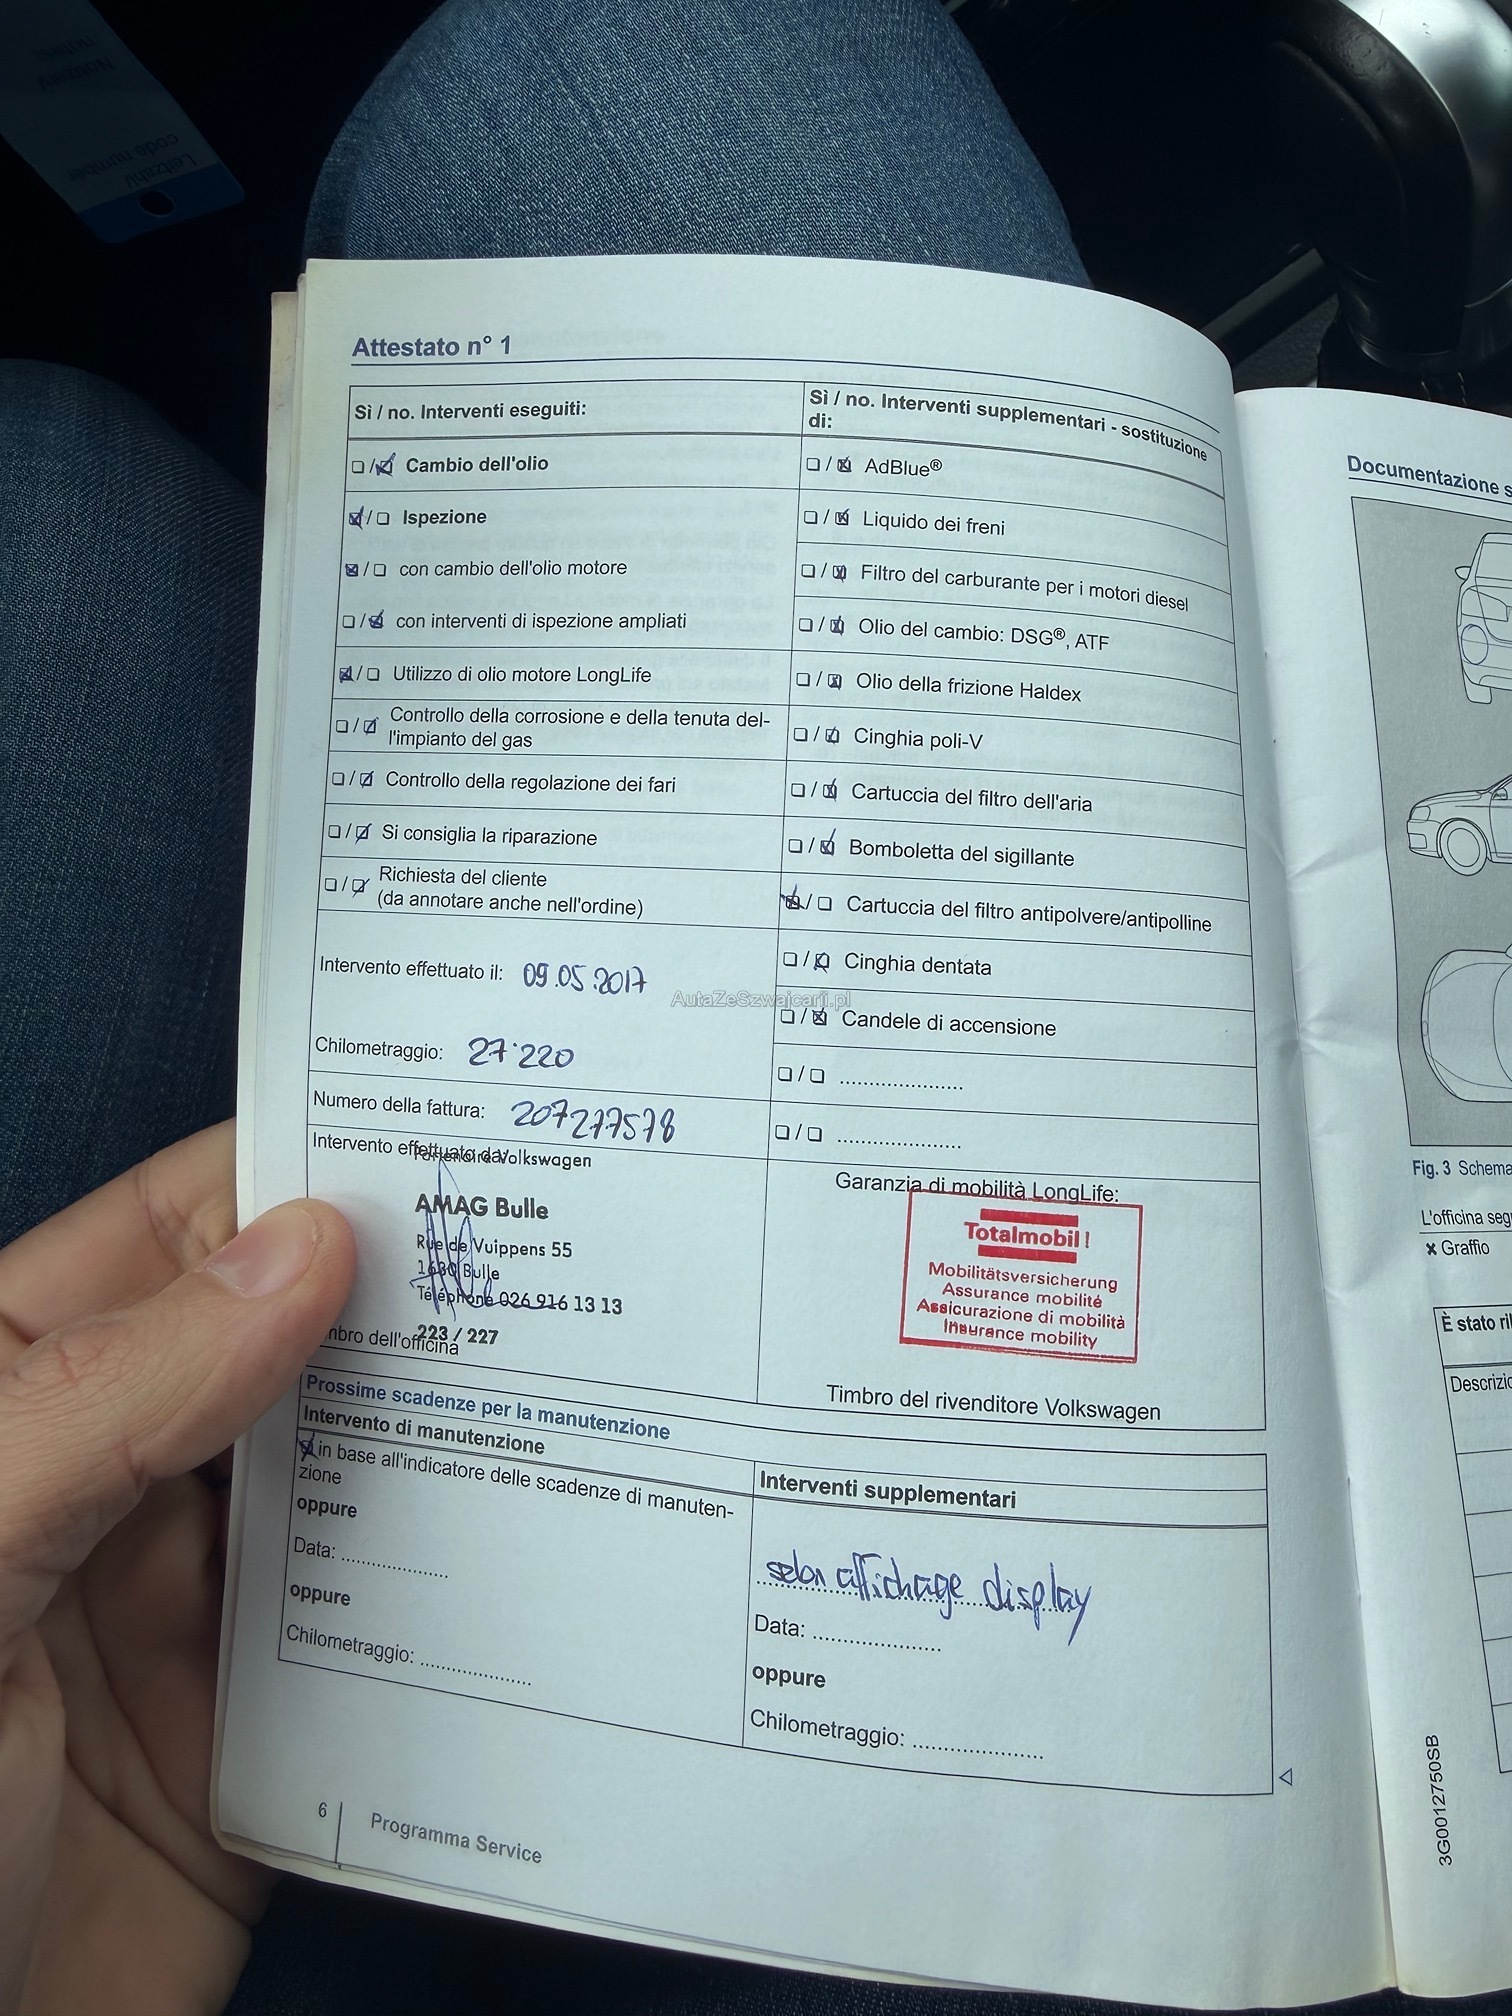 Leitzahl/
code number
Attestato n° 1
Sì / no. Interventi eseguiti:
☐ /☑ Cambio dell'olio
☑ / ☐ Ispezione
☒ / ☐ con cambio dell'olio motore
☐ / ☑ con interventi di ispezione ampliati
☑ / ☐ Utilizzo di olio motore LongLife
☐ / ☑ Controllo della corrosione e della tenuta del-
l'impianto del gas
☐ / ☑ Controllo della regolazione dei fari
☐ / ☑ Si consiglia la riparazione
☐ / ☑ Richiesta del cliente
(da annotare anche nell'ordine)
Intervento effettuato il: 09.05.2017
Chilometraggio: 27'220
Numero della fattura: 207277578
Intervento effettuato da:
Partenaire Volkswagen
AMAG Bulle
Rue de Vuippens 55
1630 Bulle
Téléphone 026 916 13 13
223 / 227
mbro dell'officina
Sì / no. Interventi supplementari - sostituzione
di:
☐ / ☒ AdBlue®
☐ / ☒ Liquido dei freni
☐ / ☒ Filtro del carburante per i motori diesel
☐ / ☒ Olio del cambio: DSG®, ATF
☐ / ☒ Olio della frizione Haldex
☐ / ☑ Cinghia poli-V
☐ / ☒ Cartuccia del filtro dell'aria
☐ / ☑ Bomboletta del sigillante
☑ / ☐ Cartuccia del filtro antipolvere/antipolline
☐ / ☒ Cinghia dentata
☐ / ☒ Candele di accensione
☐ / ☐ .....................
☐ / ☐ .....................
Garanzia di mobilità LongLife:
Totalmobil!
Mobilitätsversicherung
Assurance mobilité
Assicurazione di mobilità
Insurance mobility
Timbro del rivenditore Volkswagen
Prossime scadenze per la manutenzione
Intervento di manutenzione
☒ in base all'indicatore delle scadenze di manuten-
zione
oppure
Data: ..................
oppure
Chilometraggio: ..................
Interventi supplementari
selon affichage display
Data: .....................
oppure
Chilometraggio: .....................
6 Programma Service
AutaZeSzwajcarii.pl
Documentazione s
Fig. 3 Schema
L'officina seg
✗ Graffio
È stato ril
Descrizio
3G0012750SB